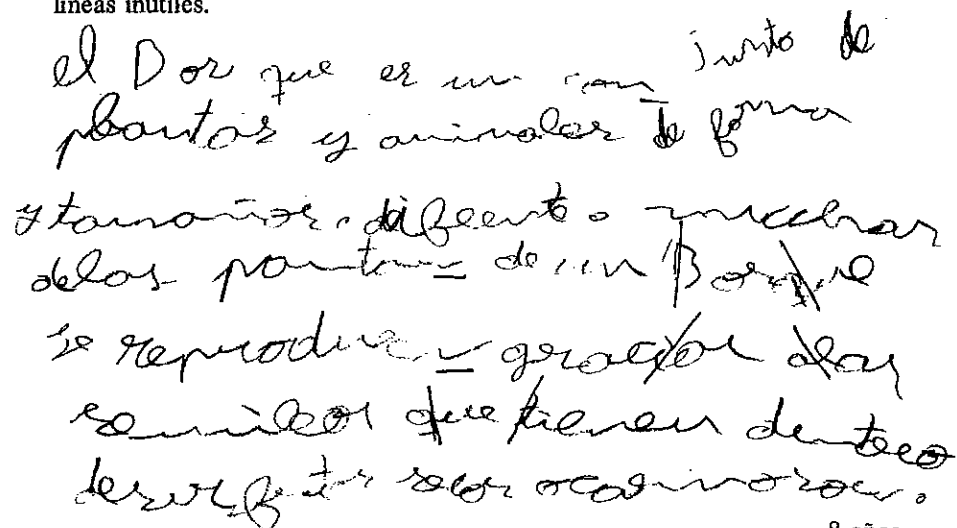 líneas inútiles.
el Dos que es un con junto de
plantas y animales de forma
y tamaños. difeente. muchas
delas pantas de un Bosque
se reproducen gracias alas
semillas que tienen denteo
desus frutos secos o carnosos.
8 años